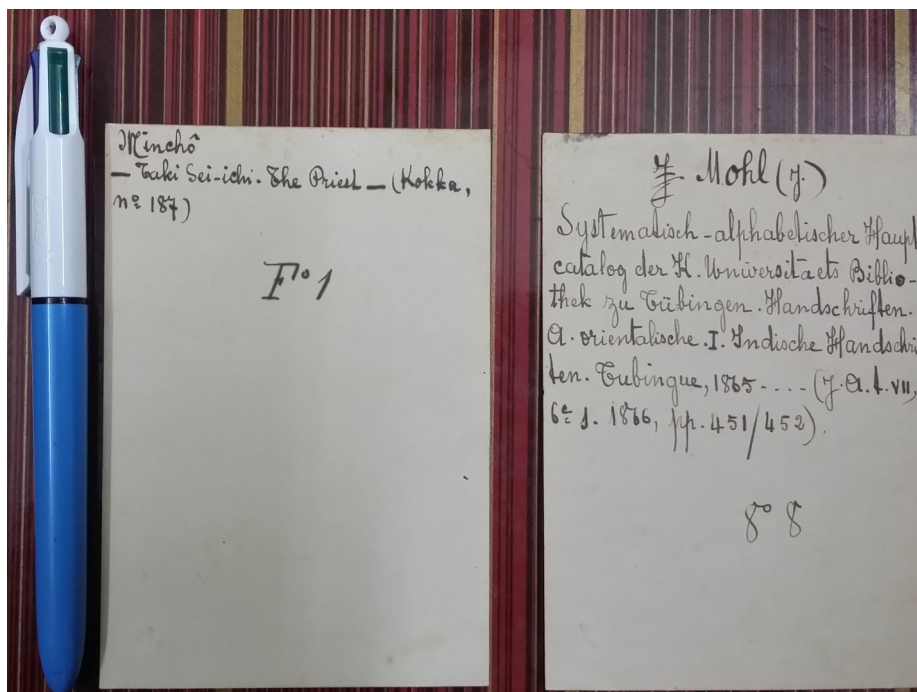 Minchô
— Taki Sei-ichi. The Priest — (Kokka,
nº 187)
Fº 1
Mohl (J.)
Systematisch-alphabetischer Haupt
catalog der K. Universitaets Biblio-
thek zu Tübingen. Handschriften.
A. orientalische. I. Indische Handschri
ten. Tubingue, 1865 .... (J. A. t. VII,
6e s. 1866, pp. 451/452).
8º 8